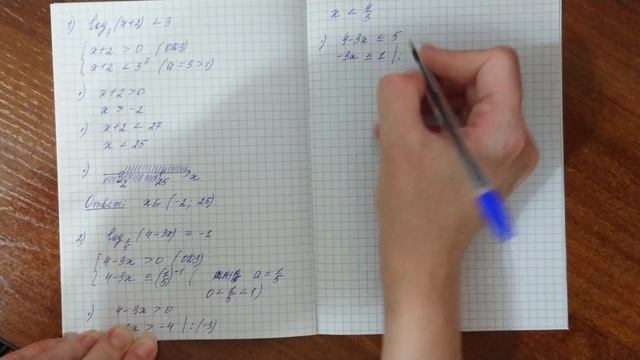 1) log₃(x+2) < 3
x+2 > 0 (ОДЗ)
x+2 < 3³ (a = 3 > 1)
x+2 > 0
x > -2
x+2 < 27
x < 25
-2 25 x
Ответ: x ∈ (-2; 25)
2) (4-3x) = -1
4-3x > 0 (ОДЗ)
4-3x ≤ ( )⁻¹ ( a =
0 < < 1)
4-3x > 0
x > -4 | :(-3)
x < 4/3
4-3x ≤ 5
-3x ≤ 1 | :